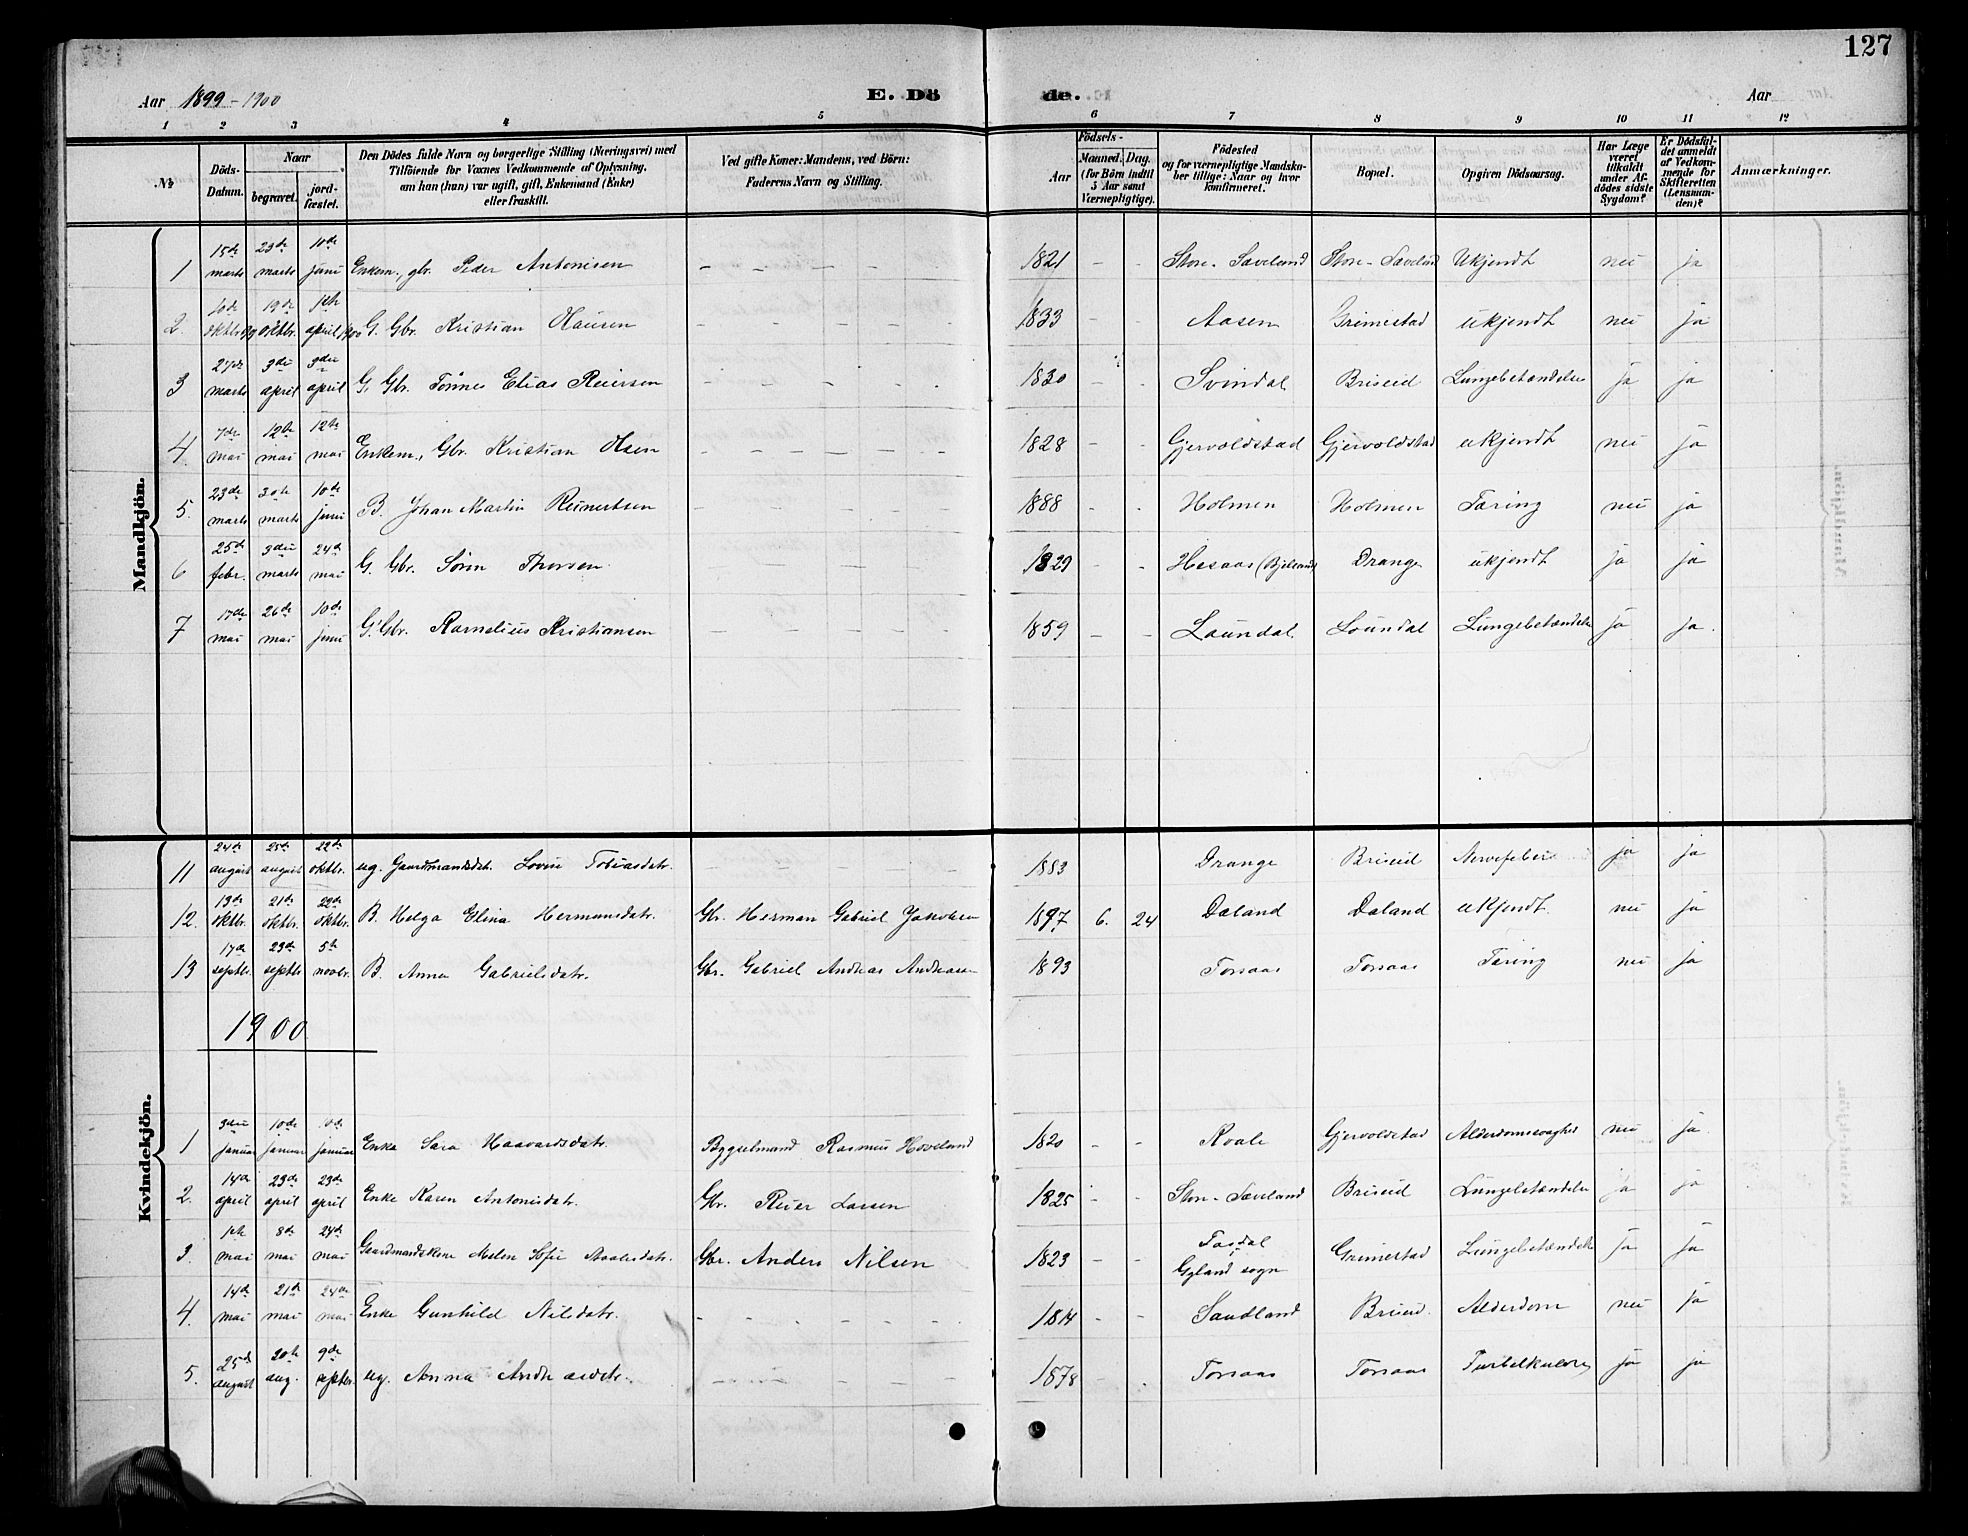 127
Aar 1899-1900
E. Dö
de.
Aar
1 2 3 4 5 6 7 8 9 10 11 12
№
Döds-Datum.
Naar
begravet.
jord-fæstet.
Den Dödes fulde Navn og borgerlige Stilling (Næringsvei) med
Tilföiende for Voxnes Vedkommende af Oplysning,
om han (hun) var ugift, gift, Enkemand (Enke)
eller fraskilt.
Ved gifte Koner: Mandens, ved Börn:
Faderens Navn og Stilling.
Födsels-
Aar
Maaned. Dag.
(for Börn indtil
5 Aar samt
Værnepligtige).
Födested
og for værnepligtige Mandska-
ber tillige: Naar og hvor
konfirmeret.
Bopæl.
Opgiven Dödsaarsag.
Har Læge
været
tilkaldt
under Af-
dödes sidste
Sygdom?
Er Dödsfal-
det anmeldt
af Vedkom-
mende for
Skifteretten
(Lensman-
den)?
Anmærkninger.
Mandkjön.
1 15de marts 23de marts 10de juni Enkem., gbr. Peder Antonisen - - - - - 1821 - - Store-Sæveland Store-Sæveland Ukjendt nei ja
2. oktbr. 99 19de oktbr. april 1900 G. Gbr. Kristian Hansen - - - - - 1833 - - Aasen Grimestad ukjendt nei ja
3 marts 3die april 3die april G. Gbr. Tönnes Elias Reiersen - - - - - 1830 - - Svindal Briseid Lungebetændelse ja ja
4. 7de mai 12te mai 12te mai Enkem., Gbr. Kristian Olsen - - - - - 1828 - - Gjervoldstad Gjervoldstad ukjendt nei ja
5. 23de marts 30te marts 10de juni B. Johan Martin Reinertsen - - - - - 1888 - - Holmen Holmen Tæring nei ja
6 25de febr. 3die marts 24de mai G. Gbr. Sören Thorsen - - - - - 1829 - - Hesaas (Bjelland) Drange ukjendt ja ja
7 17de mai 26de mai 10de juni G. Gbr. Kornelius Kristiansen - - - - - 1859 - - Laundal Laundal Lungebetændelse ja ja.
Kvindekjön.
11 24de august 25de august 22de oktbr. ug. Gaardmandsdat. Lovise Tobiasdatr. 1883 Drange Briseid Nervefeber ja ja
12. 13de oktbr. 21de oktbr. 22de oktbr. B. Helga Elina Hermansdatr. Gbr. Herman Gabriel Jakobsen 1897 6. 24 Døland Døland ukjendt. nei ja
13 17de septbr. 23de septbr 5te novbr. B. Anna Gabrielsdatr. Gbr. Gabriel Andreas Andreasen 1893 Torsaas Torsaas Tæring nei ja
1900
1 3die januar 10de januar 10de januar Enke Sara Haavardsdatr. Bygselmand Rasmus Hoveland 1820 - - Kvale Gjervoldstad Alderdomssvaghet nei ja.
2. 14de april 23de april 23de april Enke Karen Antonisdatr. Gbr. Reier Larsen 1825 - - Store-Sæveland Briseid Lungebetændelse ja ja
3. 1ste mai 8de mai 24de mai Gaardmandskone Malen Sofie Gbr. Anders Nilsen 1823 - - Tosdal Gyland sogn Grimestad Lungebetændelse ja ja
4. 14de mai 21de mai 24de mai Enke Gunhild Nilsdatr. - - - - - 1814 - - Sandland Briseid. Alderdom nei ja
5. 25de august aug. 9de septbr. ug. Anna - - - 1878 - . Torsaas Torsaas ja ja